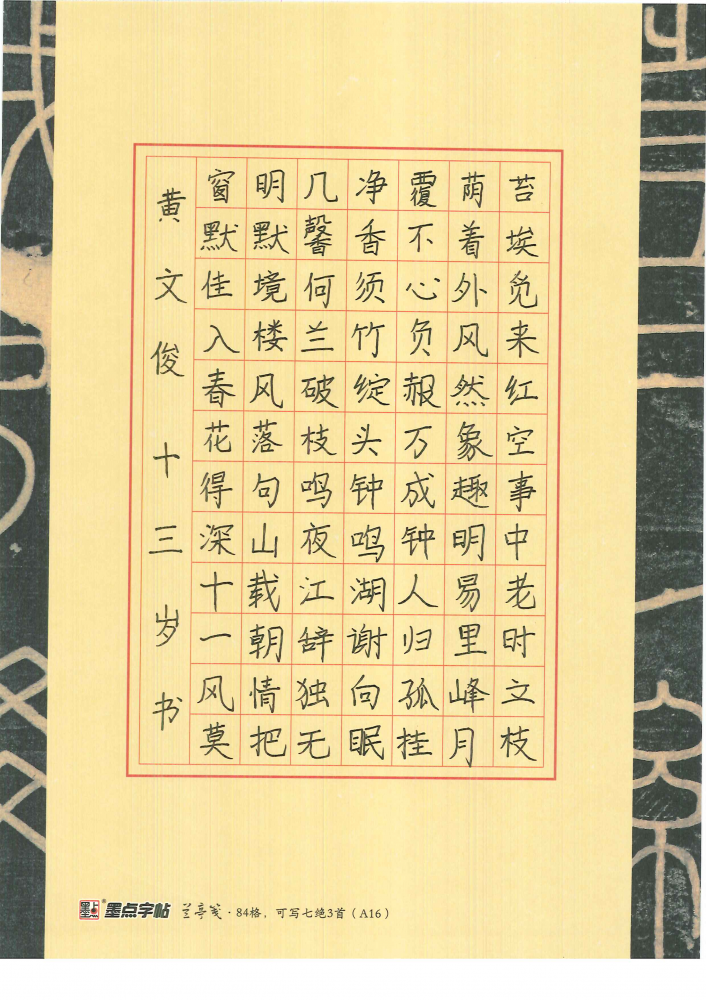 窗明几净覆荫苔
默默馨香不着埃
佳境何须心外觅
入楼兰竹负风来
春风破绽赧然红
花落枝头万象空
得句鸣钟成趣事
深山夜鸣钟明中
十载江湖人易老
一朝辞谢归里时
风情独向孤峰立
莫把无眠挂月枝
黄文俊十三岁书
墨点 ®墨点字帖 兰亭笺·84格，可写七绝3首（A16）